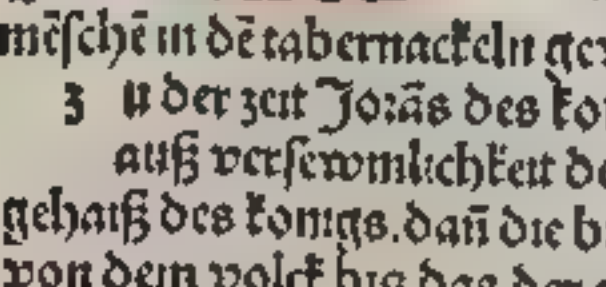 mēſchē in dē tabernackeln
Zu der zeit Joꝛās des
auß verſewmlichkeit
gehaiß des konigs. dañ die
von dem volck bis das der